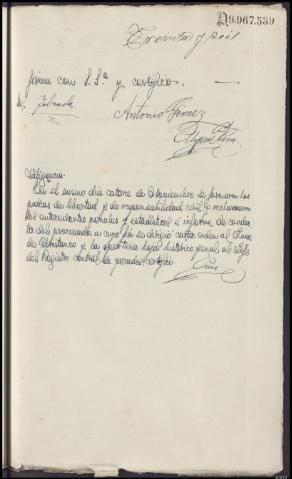 D9.967.539
Treinta y seis
firma con S.Sª y certifico.
Antonio Gómez
Diligencia.
En el mismo dia catorce de Noviembre se formaron las
piezas de libertad y de responsabilidad civil y reclamaron
los antecedentes penales y estadisticos é informe de conduc
ta del procesado a cuyo fin se dirigió carta orden al Juez
de y la oportuna hoja histórico penal al Jefe
del Registro central de penados. Certifico